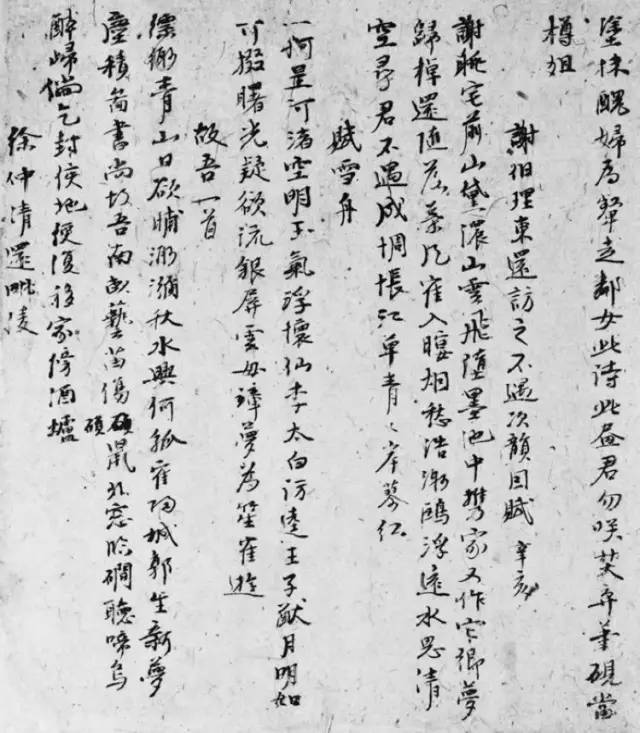 塗抹醜婦為顰走鄰女此詩此畫君勿咲焚弃筆硯當
樽俎
謝伯理東還訪之不遇次韻因賦 辛亥
謝眺宅前山黛濃山雲飛墮墨池中携家又作它鄉夢
歸棹還隨落葉風雀入暝烟愁浩渺鷗浮遠水思清
空尋君不遇成惆悵江草青々岸蓼紅
賦雪舟
一舸是河渚空明玉氣浮懷仙李太白訪逵王子猷月明如
可掇曙光疑欲流銀屏雲母障夢為笙雀遊
故吾一首
縹緲青山日欲晡渺瀰秋水興何孤雀歸城郭生新夢
塵積圖書尚故吾南畝藝苗傷碩鼠北窓臨磵聽啼烏
碩
醉歸倘乞封侯地便復移家傍酒壚
徐仲清還毗陵